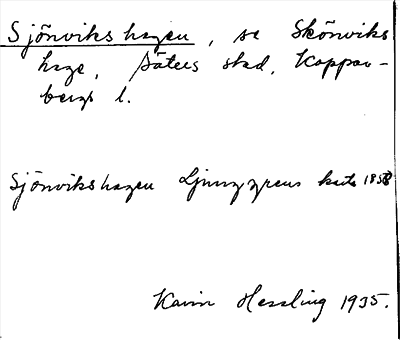 Sjönvikshagen, se Skönviks
hage, Säters stad, Koppar-
bergs l.
Sjönvikshagen Ljunggrens karta 1858
Karin Hessling 1935.